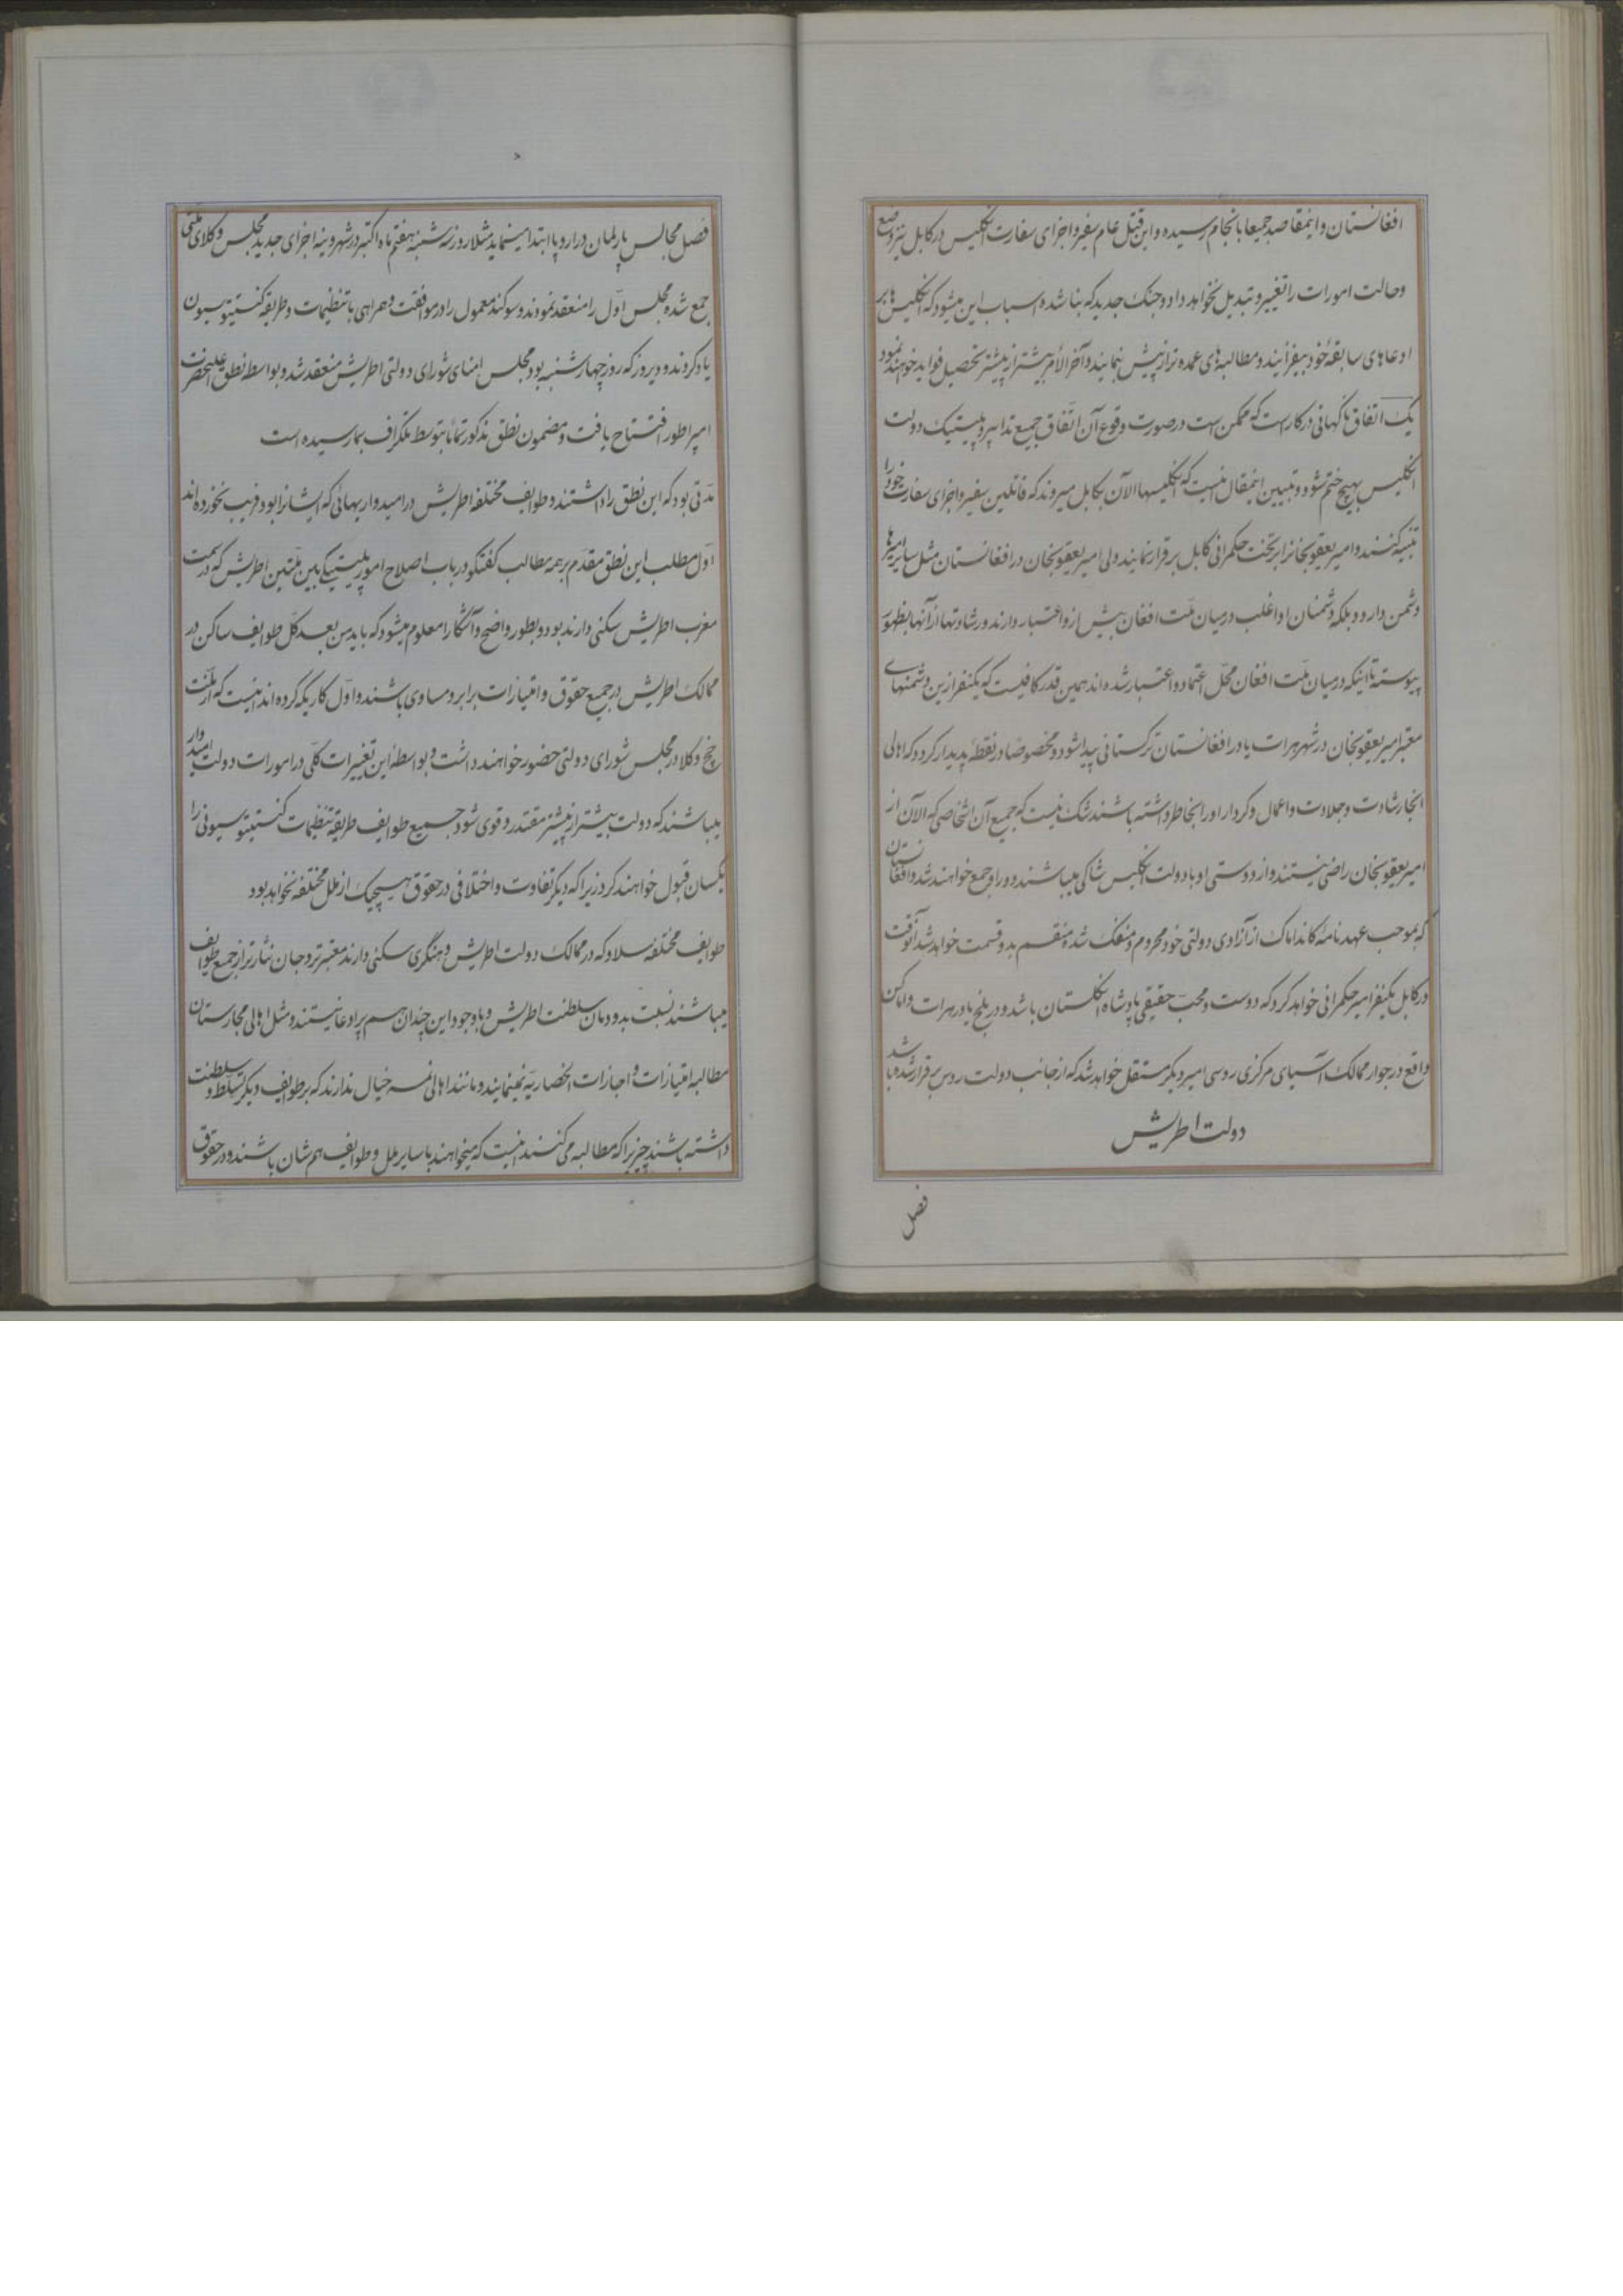 افغانستان و اینمقاصد جمیعا بانجام رسیده و این قتل عام سفیر و اجزای سفارت انگلیس در کابل نیز وضع
و حالت امورات را تغییر و تبدیل نخواهد داد و جنک جدید که بنا شده اسباب این میشود که انگلیس ها بر
ادعاهای سابقهٔ خود بیفزایند و مطالبه های عمده تر از پیش بنمایند و آخر الأمر بیشتر از پیشتر تحصیل فواید خواهند نمود
یک اتفاق ناگهانی در کار است که ممکن است در صورت وقوع آن اتّفاق جمیع تدابیر و پلیتیک دولت
انگلیس بهیچ ختم شود و تبیین اینمقال اینست که انگلیسها الآن بکابل میروند که قاتلین سفیر و اجزای سفارت خود را
تنبیه کنند و امیر یعقوبخانرا بر تخت حکمرانی کابل برقرار نمایند ولی امیر یعقوبخان در افغانستان مثل سایر امیرها
دشمن دارد و بلکه دشمنان او اغلب در میان ملّت افغان بیش از او اعتبار دارند و رشادتها از آنها بظهور
پیوسته تا اینکه در میان ملّت افغان محّل اعتماد و اعتبار شده اند همین قدر کافیست که یکنفر ازین دشمنهای
معتبر امیر یعقوبخان در شهر هرات یا در افغانستان ترکستانی پیدا شود و مخصوصاً در نقطهٔ پدیدار کردد که اهالی
انجا رشادت و جلادت و اعمال و کردار او را بخاطر داشته باشند شک نیست که جمیع آن اشخاصی که الآن از
امیر یعقوبخان راضی نیستند و از دوستی او با دولت انگلیس شاکی میباشند دور او جمع خواهند شد و افغانستان
که بموجب عهدنامهٔ کانداماک از آزادی دولتی خود محروم و منفک شده منقسم بدو قسمت خواهد شد آنوقت
در کابل یکنفر امیر حکمرانی خواهد کرد که دوست و محبّ حقیقی پادشاه انگلستان باشد و در بلخ یا در هرات و اماکن
واقع در جوار ممالک آسیای مرکزی روسی امیر دیکر مستقل خواهد شد که از جانب دولت روس برقرار شده باشد
دولت اطریش
فصل
فصل مجالس پارلمان در اروپا ابتدا مینماید مثلا روز سه شنبه هفتم ماه اکتبر در شهر وینه اجزای جدید مجلس وکلای ملّتی
جمع شده مجلس اوّل را منعقد نمودند و سوکند معمول را در موافقت و همراهی با تنظیمات و طریقه کنستیتوسیون
یاد کردند و دیروز که روز چهارشنبه بود مجلس امنای شورای دولتی اطریش منعقد شد و بواسطه نطق علیحضرت
امپراطور افتتاح یافت و مضمون نطق مذکور تماماً بتوسط تلکراف بما رسیده است
مدّتی بود که این نطق را داشتند و طوایف مختلفه اطریش در امیدواریهائی که ایشانرا بود فریب نخورده اند
اوّل مطلب این نطق مقدّم بر همه مطالب کفتکو در باب اصلاح امور پلیتیکی بین ملّتین اطریش که در سمت
مغرب اطریش سکنی دارند بود و بطور واضح و آشکارا معلوم میشود که باید من بعد کلّ طوایف ساکن در
ممالک اطریش در جمیع حقوق و امتیازات برابر و مساوی باشند و اوّل کاریکه کرده اند اینست که از ملّت
چخ وکلا در مجلس شورای دولتی حضور خواهند داشت و بواسطهٔ این تغییرات کلّی در امورات دولت امیدوار
میباشند که دولت بیشتر از پیشتر مقتدر و قوی شود جمیع طوایف طریقه تنظیمات کنستیتوسیونی را
یکسان قبول خواهند کرد زیرا که دیکر تفاوت و اختلافی در حقوق هیچیک از ملل مختلفه نخواهد بود
طوایف مختلفه سلاو که در ممالک دولت اطریش و هنگری سکنی دارند معتبرتر و جان نثارتر از جمیع طوایف
میباشند نسبت بدودمان سلطنت اطریش و با وجود این چندان هم پر ادعا نیستند و مثل اهالی مجارستان
مطالبه امتیازات و اجازات انحصاریه نمینمایند و مانند اهالی نمسه خیال ندارند که بر طوایف دیکر تسلّط و سلطنت
داشته باشند چیزیرا که مطالبه می کنند اینست که میخواهند با سایر ملل و طوایف هم شان باشند و در حقوق